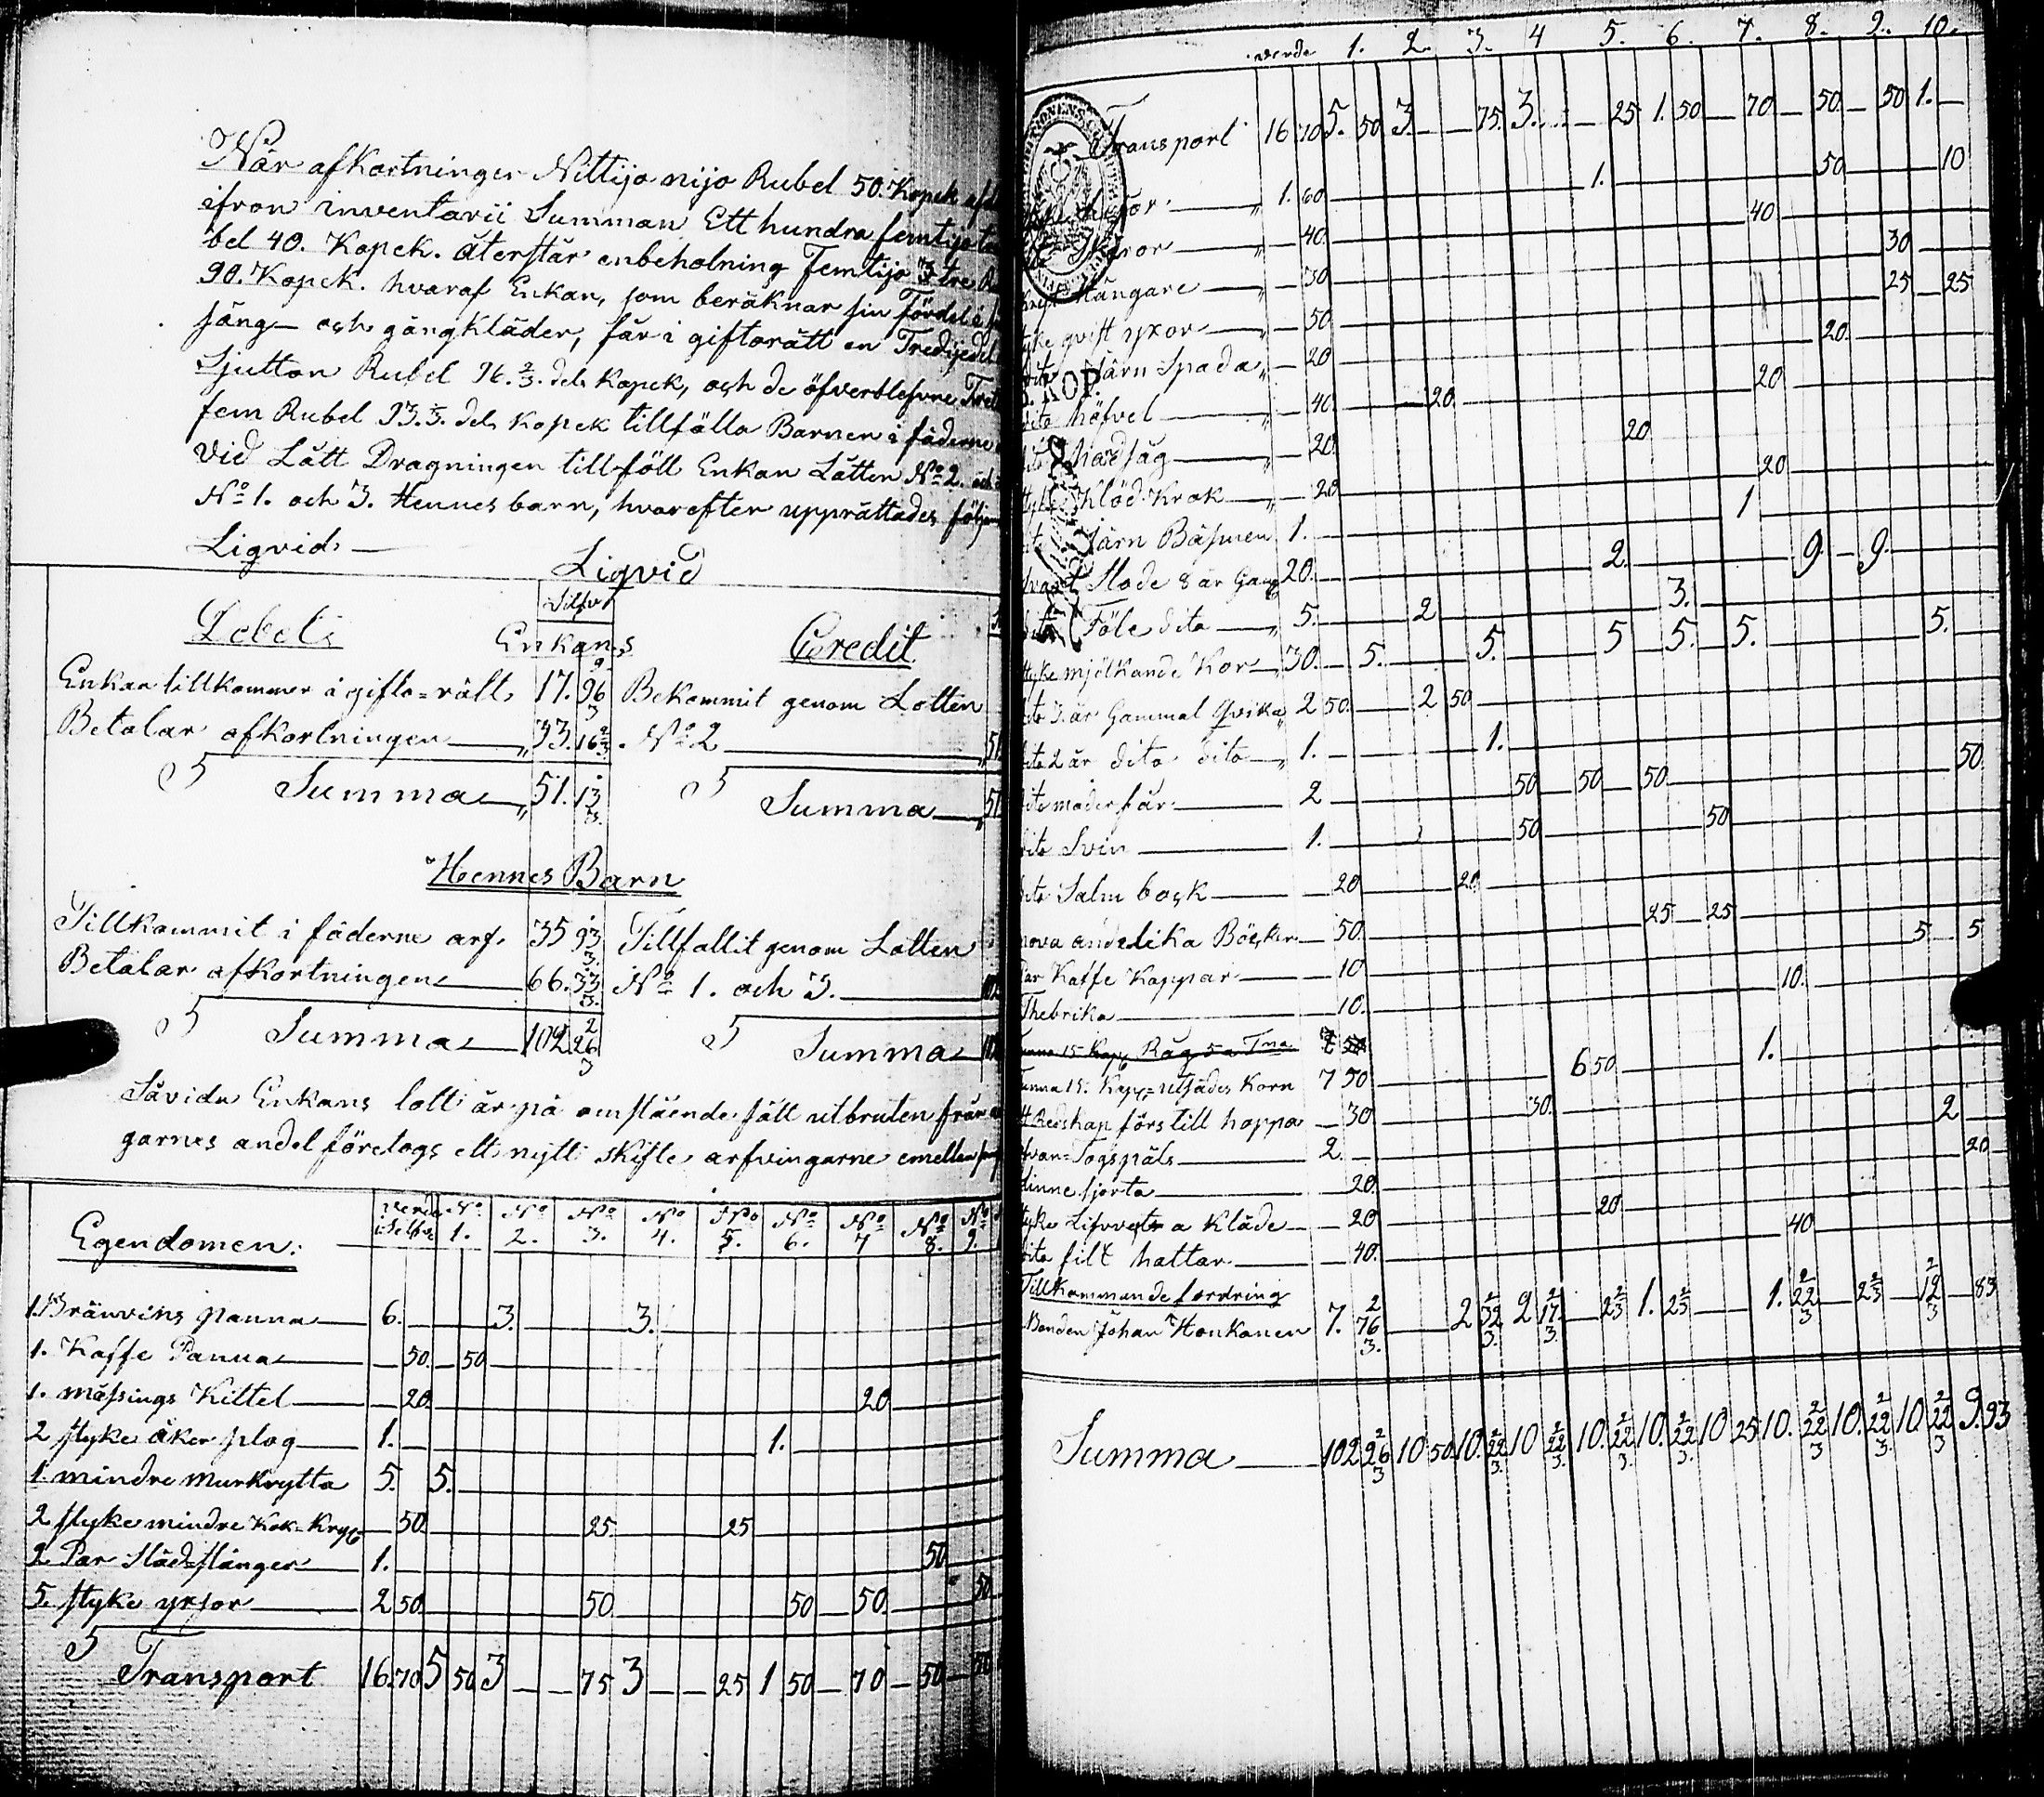 När afkortningen Nittijo nijo Rubel 50. Kopek
ifron inventarii Summan Ett hundra femtijo
bel 40. Kopek. återstår enbeholning Femtijo tre
90. Kopek. hvaraf Enkan, som beräknar sin Fördel i
säng- och gångkläder, får i giftorätt en Tredjedel
Sjutton Rubel 96.⅔. dels Kopek, och de öfverblefvne
fem Rubel 93.⅓. dels Kopek tillfälla Barnen i fäderne
Vid Lått Dragningen tillföll Enkan Låtten No 2.
No 1. och 3. Hennes barn, hvarefter upprättades
Liqvid
Liqvid
Silfver
Debet
Enkans
Credit
Enkan tillkommer i gifto=rätt 17. 96⅔ Bekommit genom Lotten
Betalar afkortningen 33. 16⅔ No 2
Summa 51. 13⅓ Summa 51
Hennes Barn
Tillkommit i fäderne arf. 35 93⅓ Tillfallit genom Lotten
Betalar afkortningen 66. 33⅓ No 1. och 3.
Summa 102 26⅔ Summa
Såvida Enkans lott är på omstående sätt utbruten från
garnes andel företogs ett nytt skifte arfvingarne emellan
Egendomen. Verde i Silfver No 1. No 2. No 3. No 4. No 5. No 6. No 7 No 8. No 9.
1. Bränvins panna 6. 3. 3.
1. Kaffe Panna 50. 50
1. mässings Kittel 20. 20
2 styke åker plog 1. 1.
1. mindre Murkrytta 5. 5.
2 styke mindre Kok=Kryt 50 25 25
2 Par Släd=stänger 1. 50
5. styke yxsor 2 50. 50 50 50. 50
Transport 16. 70 5 50 3 75 3 25 1 50 70 50 50
verde 1. 2. 3. 4 5. 6. 7. 8. 9. 10.
Transport 16 70 5. 50 3. 75. 3. 25 1. 50 70 50. 50 1.
1. 60 1. 50 10
40. 40
Hängare 30 30
qvist yxor 50. 25 25
Järn Spada 20 20.
höfvel 40. 20. 20
handsåg 20. 20
Klöd Krok 20 20
Järn Bäsmen 1. 1
Stode 8 år Gam 20. 2. 9 9.
Föle dito 5. 2 3.
styke mjölkande Kor 30. 5. 5. 5 5. 5. 5.
3. år Gammal Qvika 2 50. 2 50
2 år dito dito 1. 1.
moderfår 2 50 50 50 50
dito Svin 1. 50 50
dito Salm bock 20 20
nova andelika Böcker 50. 25 25
Par Kaffe Koppar 10 5 5
Thebrika 10. 10.
15 Kapp Råg 5 a Tna 7 50
Tunna 15. Kapp utsädes Korn 7 50 6 50 1.
Redskap förs till hoppa 30 30.
Togspäls 2. 2
linne sjorta 20. 20
styke Lifvets a Kläde 20 20
dito filt hattar 40. 40
Tillkommande fordring
Bonden Johan Honkanen 7. 76⅔ 2 32⅔ 2 17⅔ 2⅔ 1. 2⅔ 1. 22⅔ 2⅔ 12⅔ 83
Summa 102 26⅔ 10 50. 10. 22⅔ 10 22⅔ 10. 22⅔ 10. 22⅔ 10 25 10. 22⅔ 10. 22⅔ 10 22⅔ 9. 93